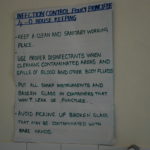 INFECTION CONTROL POLICY PRINCIPLE
4. HOUSE KEEPING
- KEEP A CLEAN AND SANITARY WORKING
PLACE.
- USE PROPER DISINFECTANTS WHEN
CLEANING CONTAMINATED AREAS AND
SPILLS OF BLOOD AND OTHER BODY FLUIDS
- PUT ALL SHARP INSTRUMENTS AND
BROKEN GLASS IN CONTAINERS THAT
WON'T LEAK OR PUNCTURE.
- AVOID PICKING UP BROKEN GLASS
THAT CAN BE CONTAMINATED WITH
BARE HANDS.